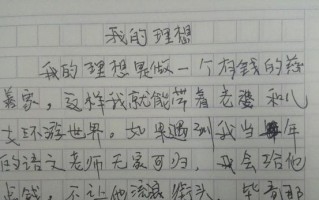 我的理想
我的理想是做一个有钱的慈
善家，这样我就能带着老婆和儿
女环游世界。如果遇到我当年
的语文老师无家可归，我会给他
点钱，不让他流浪街头，毕竟那